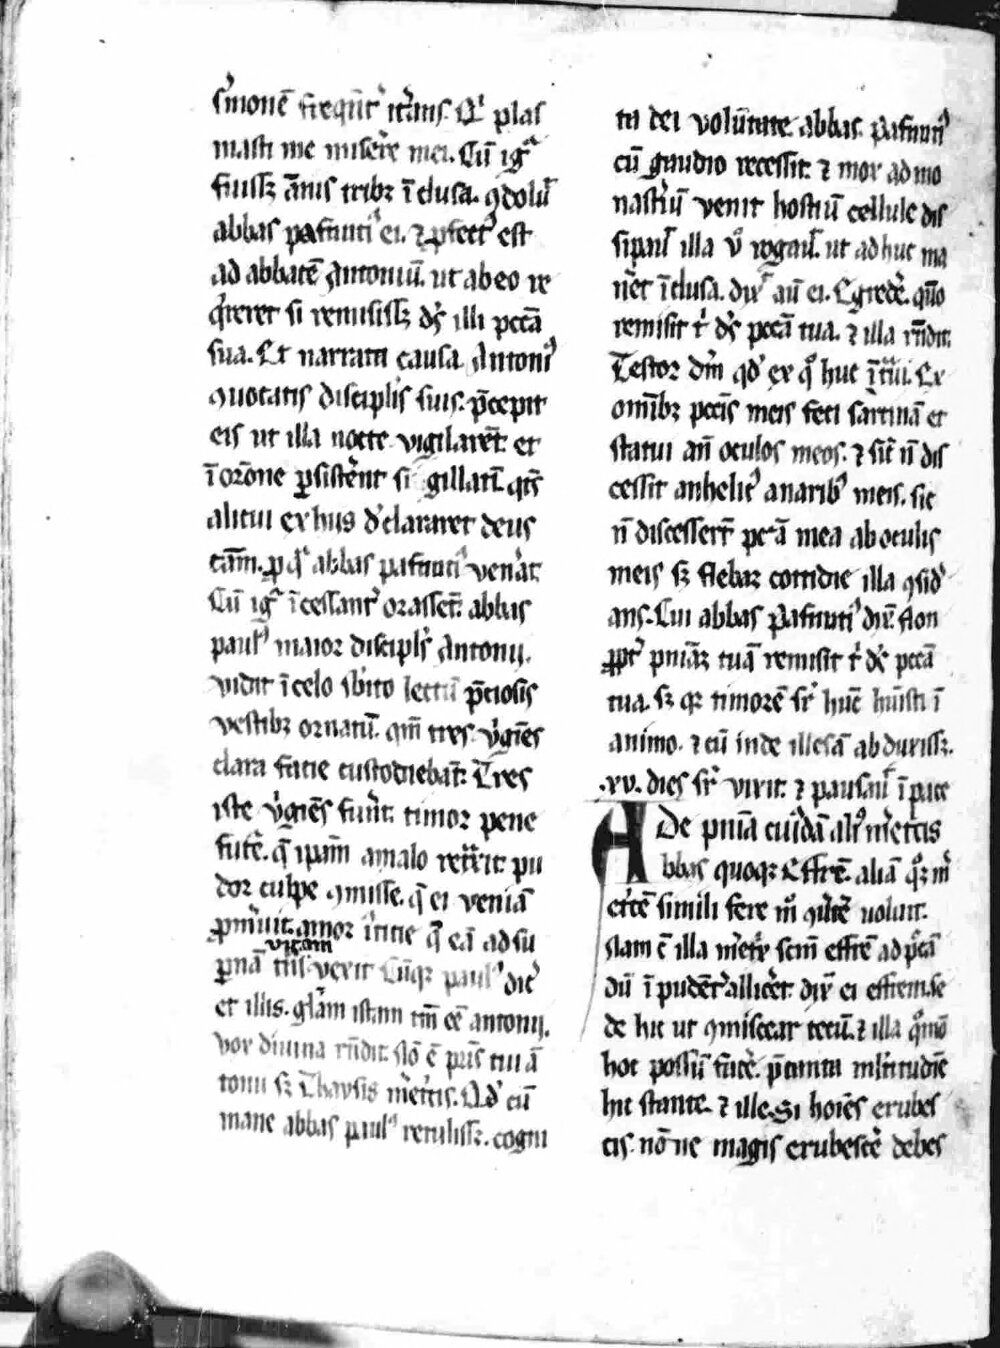 s̾monē freqn̄t͛ it͛ans. Qͥ plas
masti me mis͛ere mei. Cū igͥ
fuiss; ānis trib; ī clusa. ꝯdoluͥ
abbas pafnutiꝰ ei. ⁊ ꝓfectꝰ est
ad abbatē Antoniū. ut ab eo re
q͛reret si remisiss; dꝰ illi pccā
sua. Et narrata causa. Antoniꝰ
ꝯuocatis discipͥlis suis. p̄cepit
eis ut illa nocte vigilarēt. et
ī or̄one ꝑsist͛ent si gillatī. qt̄s
alicui ex hiis d͛clararet deus
cām. ꝓ qͣ abbas pafnutiꝰ ven͛at.
Cū igͥ īcessant͛ orassēt. abbas
paulꝰ maior discipͥls Antonij.
vidit ī celo sb̾ito lectū p̄ciosis
vestib; ornatū. qm̄ tres. v͛gīes
clara facie custodiebāt. Tres
iste v͛gīes fuer̄t. timor pene
futͤ. q̄ ip̄am a malo ret̾xit. pu
dor culpe ꝯmisse. q̄ ei veniā
ꝓm͛uit. amor iusticie q̄ eā ad su
ꝑnā vitam t̾ns vexit Cūq; paulꝰ dic͛
et illis. gl̄am istam tm̄ cē antonij.
vox divina rn̄dit. Nō ē pr̄is tui ā
tonii s; Thaysis m͛et͛cis. Qd͛ cū
mane abbas paulꝰ retuliss;. cogni
ta dei volūtate. abbas. Pafnutiꝰ
cū gaudio recessit. ⁊ mox ad mo
nast͛iū venit hostiū cellule dis
sipauͥ. illa v͛o rogauͥ. ut ad huc ma
n͛et ī clusa. dixͥ aū ei. Egred͛e. qm̄o
remisit tͥ dꝰ pccā tua. ⁊ illa rn̄dit.
Testor dm̄ qd͛ ex qͦ huc īt͛ui. Ex
omīb; pccīs meis feci sarcinā et
statui an̄ oculos meos. ⁊ sic̄ n̄ dis
cessit anhelitꝰ a narib; meis. sic
n̄ discesser̄t pccā mea ab oculis
meis s; flebam cottidie illa ꝯsid͛
ans. Cui abbas Pafnutiꝰ dix̄. Non
ꝓpt͛ pniā; tuā remisit tͥ dꝰ pccā
tua. s; qr timorē sꝑ hūc huīsti ī
animo. ⁊ cū inde illesā ab duxiss;.
.xv. dies sꝑ vixit. ⁊ pausauͥ ī pace
De pniā cuīdā alīꝰ m͛et͛cis
Abbas quoq; Effrē. aliā qͦ; m͛
et͛cē simili fere mͦ ꝯu͛tͤ uoluit.
Nam cū illa m͛etͥx scm̄ effrē ad pccā
dū ī pudēt͛ allic͛et. dixͥ ei effrem. se
de hic ut ꝯmiscear tecū. ⁊ illa qͦmō
hoc possū fac͛e. p̄ tanta ml̄titudīe
hic stante. ⁊ ille. Si hoīes erubes
cis. nō ne magis erubesc͛e debes